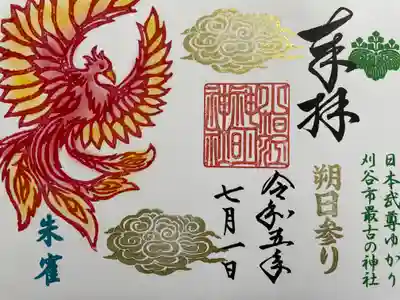 奉拝
日本武尊ゆかり
刈谷市最古の神社
朔日参り
令和五年
七月一日
神明神社
朱雀